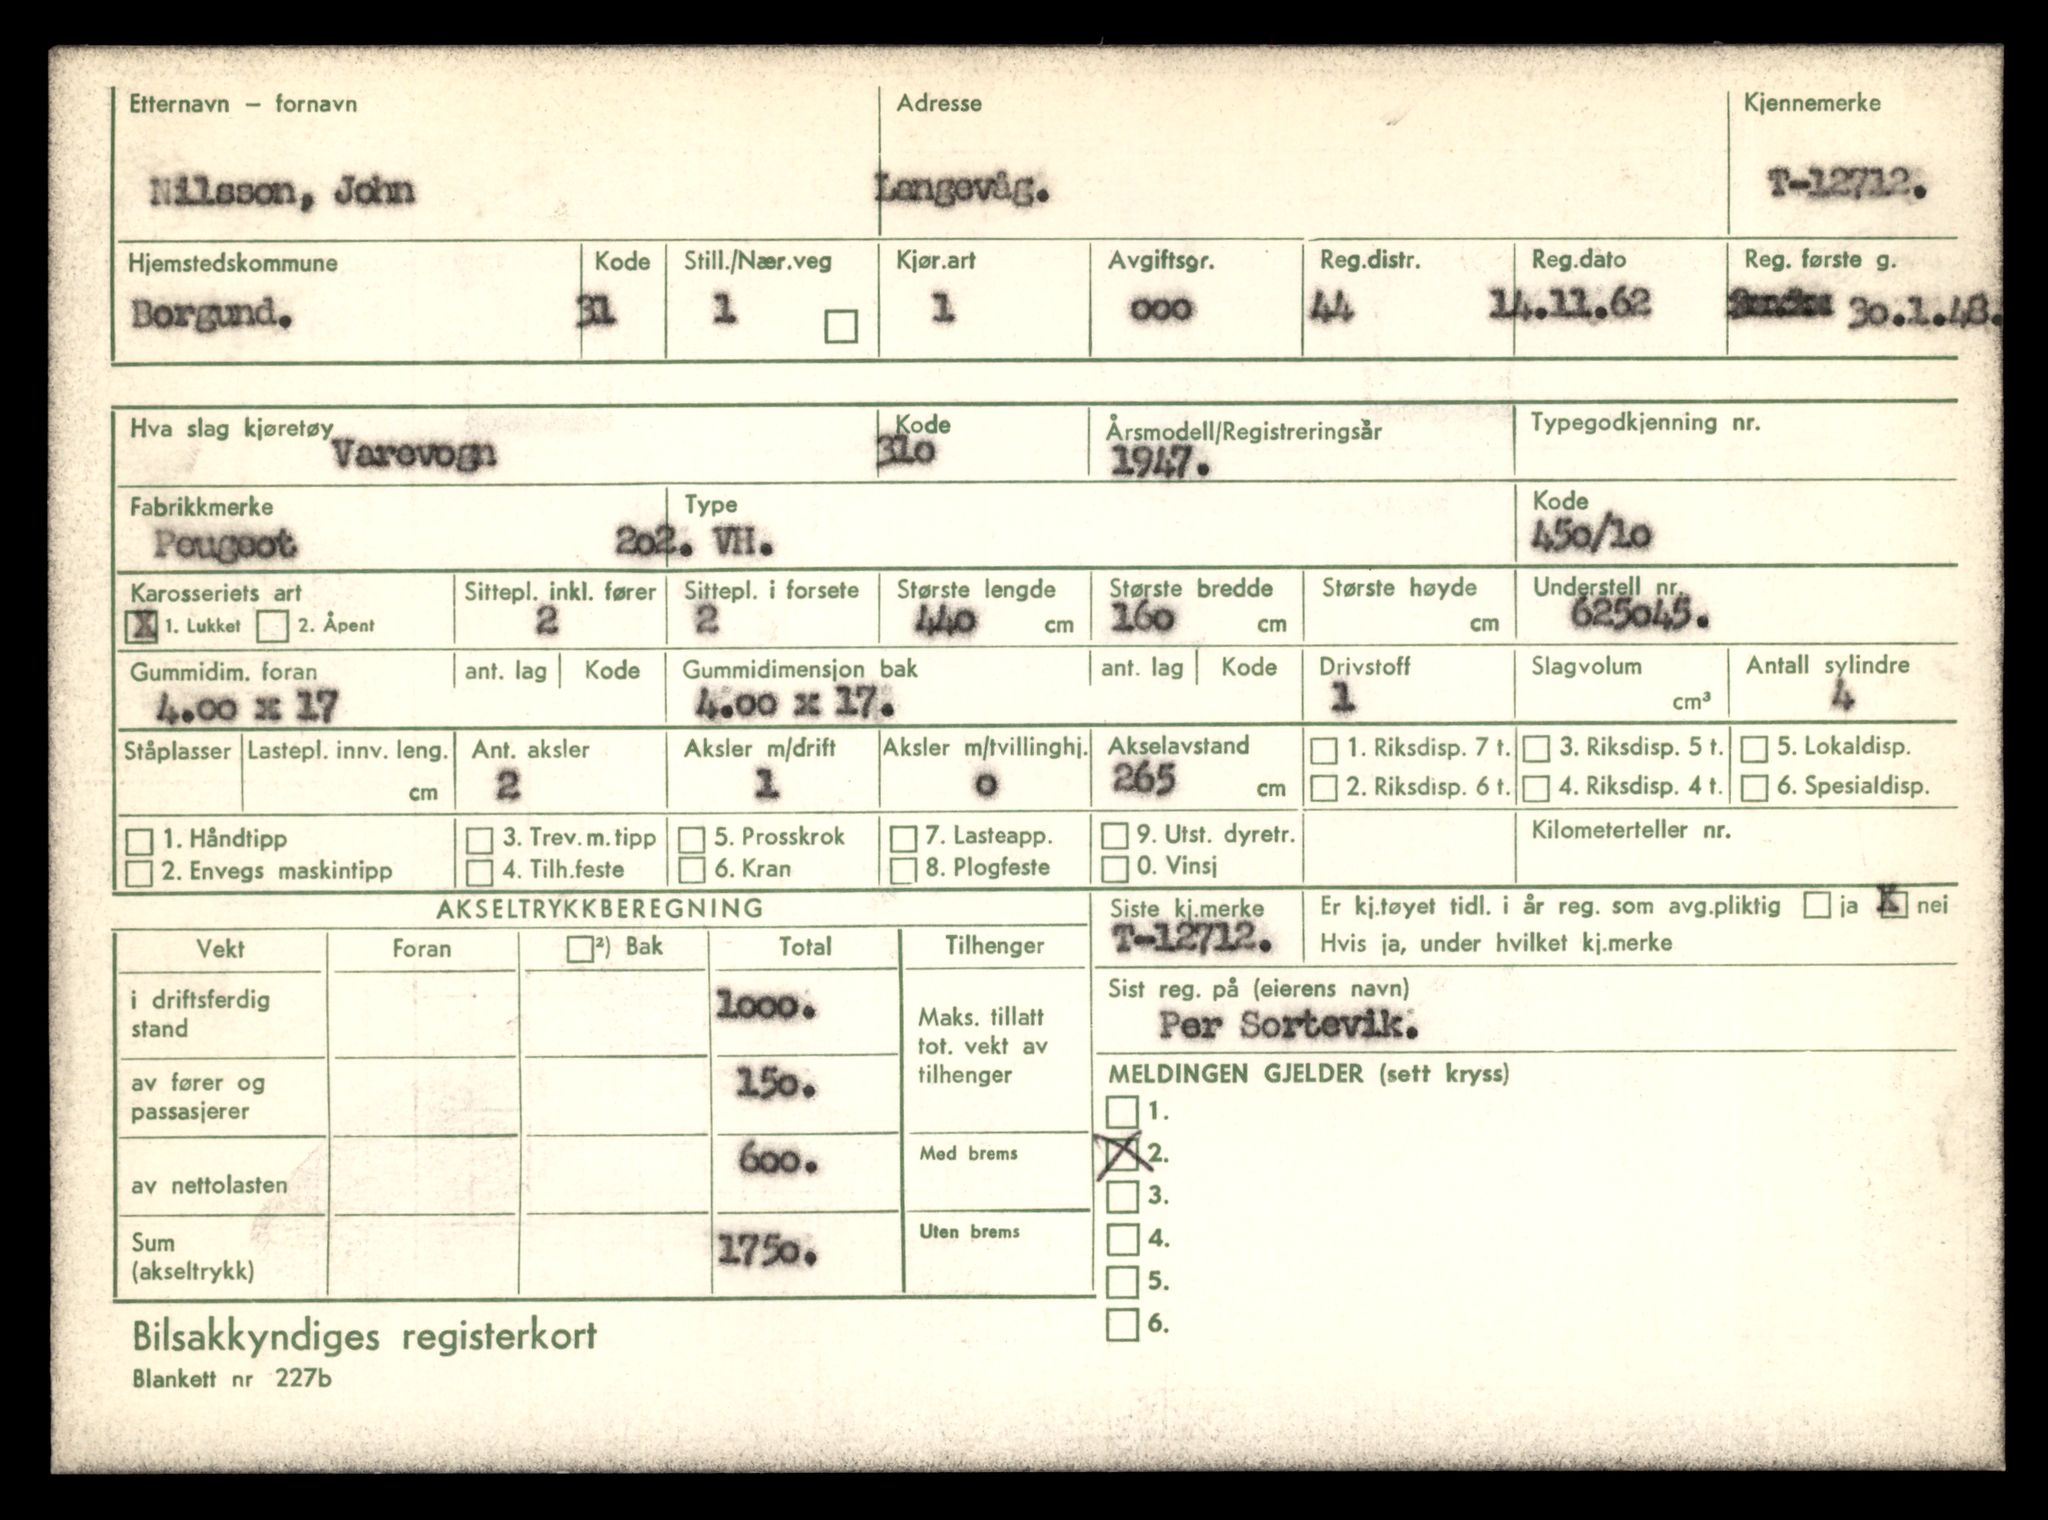 Etternavn – fornavn Adresse Kjennemerke
Nilsson, John Langevåg. T-12712.
Hjemstedskommune Kode Still./Nær.veg Kjør.art Avgiftsgr. Reg.distr. Reg.dato Reg. første g.
Borgund. 31 1 1 000 44 14.11.62 30.1.48.
Hva slag kjøretøy Kode Årsmodell/Registreringsår Typegodkjenning nr.
Varevogn 310 1947.
Fabrikkmerke Type Kode
Peugeot 202. VH. 450/10
Karosseriets art Sittepl. inkl. fører Sittepl. i forsete Største lengde Største bredde Største høyde Understell nr.
X 1. Lukket 2. Åpent 2 2 440 cm 160 cm cm 625045.
Gummidim. foran ant. lag Kode Gummidimensjon bak ant. lag Kode Drivstoff Slagvolum Antall sylindre
4.00 x 17 4.00 x 17. 1 cm³ 4
Ståplasser Lastepl. innv. leng. Ant. aksler Aksler m/drift Aksler m/tvillinghj. Akselavstand 1. Riksdisp. 7 t. 3. Riksdisp. 5 t. 5. Lokaldisp.
cm 2 1 0 265 cm 2. Riksdisp. 6 t. 4. Riksdisp. 4 t. 6. Spesialdisp.
1. Håndtipp 3. Trev. m. tipp 5. Prosskrok 7. Lasteapp. 9. Utst. dyretr. Kilometerteller nr.
2. Envegs maskintipp 4. Tilh.feste 6. Kran 8. Plogfeste 0. Vinsj
AKSELTRYKKBEREGNING Siste kj.merke Er kj.tøyet tidl. i år reg. som avg.pliktig ja X nei
T-12712. Hvis ja, under hvilket kj.merke
Vekt Foran ²) Bak Total Tilhenger
Sist reg. på (eierens navn)
Per Sortevik.
i driftsferdig
stand 1000.
Maks. tillatt
tot. vekt av
tilhenger
av fører og
passasjerer 150.
MELDINGEN GJELDER (sett kryss)
1.
av nettolasten 600. Med brems
X 2.
3.
Sum
(akseltrykk) 1750. Uten brems
4.
5.
6.
Bilsakkyndiges registerkort
Blankett nr 227b